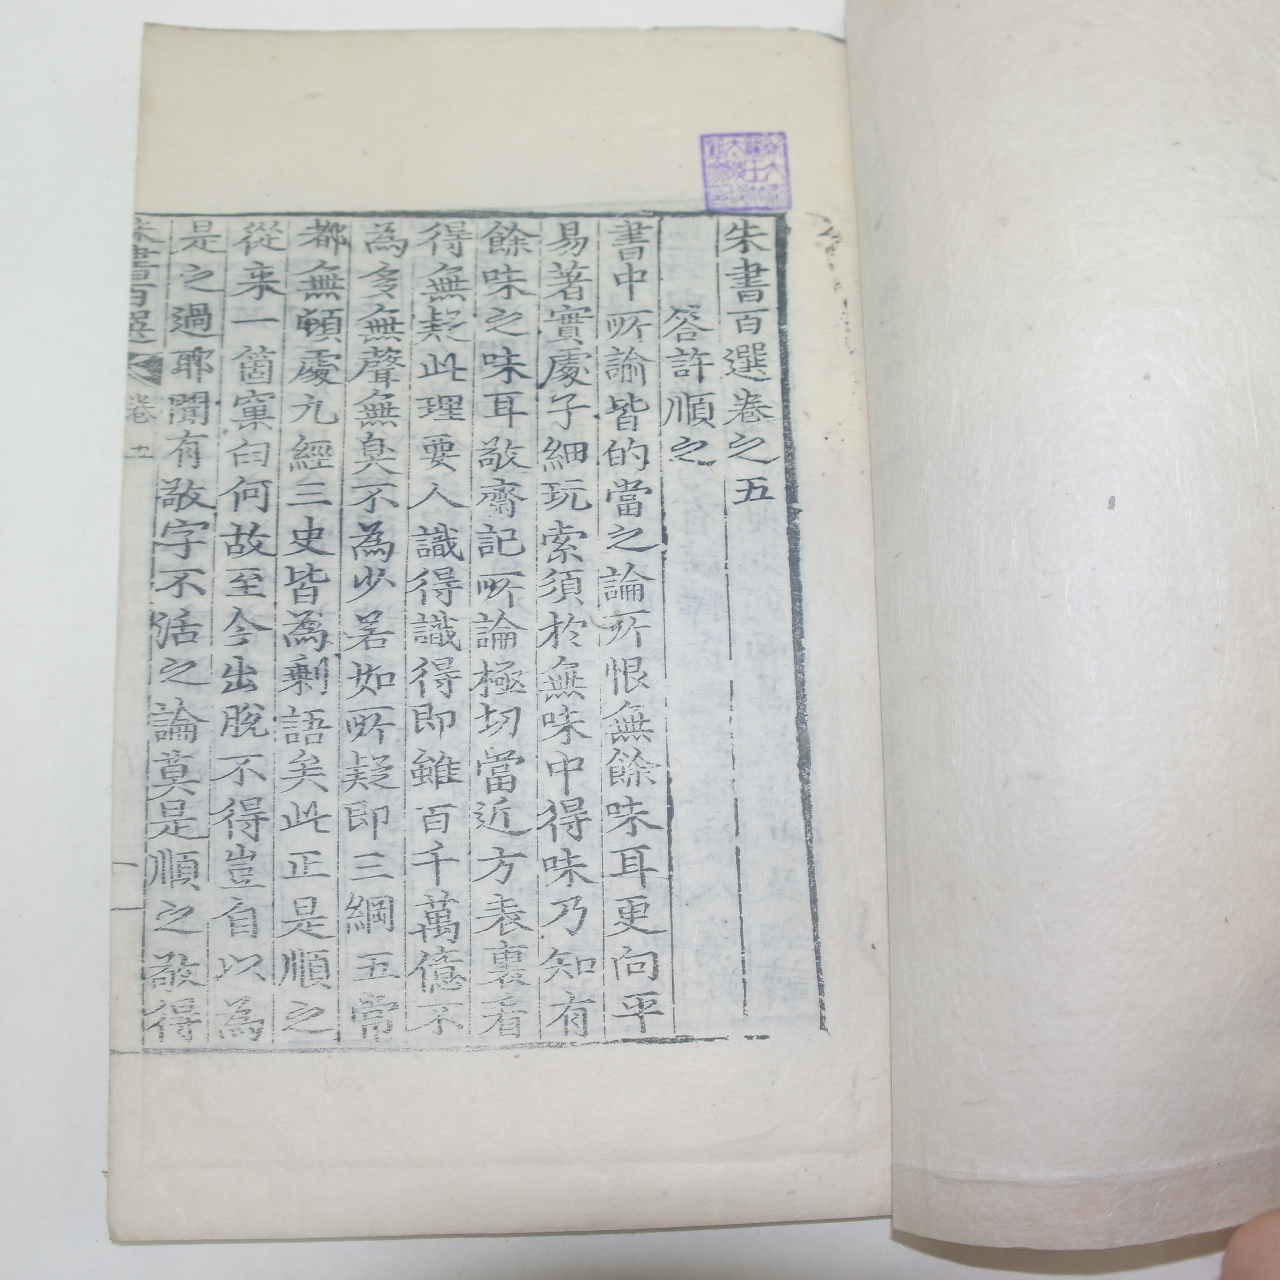 朱書百選卷之五
答許順之
書中所諭皆的當之論所恨無餘味耳更向平
易著實處子細玩索須於無味中得味乃知有
餘味之味耳敬齋記所論極切當近方表裏看
得無疑此理要人識得識得即雖百千萬億不
為多無聲無臭不為少若如所疑即三綱五常
都無頓處九經三史皆為剩語矣此正是順之
從来一箇窠臼何故至今出脫不得豈自以為
是之過耶聞有敬字不活之論莫是順之敬得
朱書百選 卷